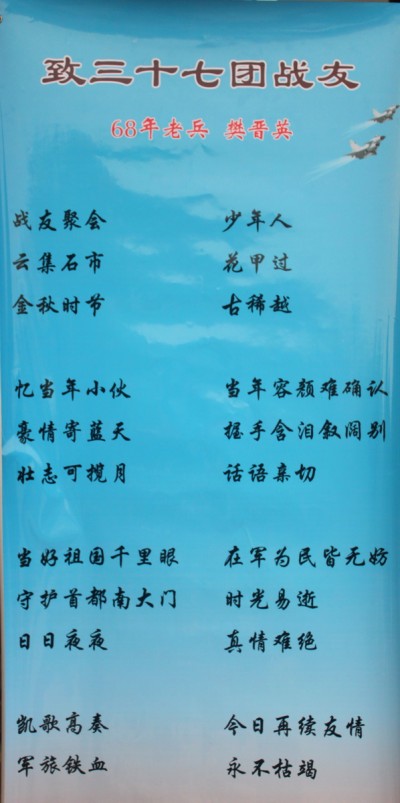 致三十七团战友
68年老兵 樊晋英
战友聚会
云集石市
金秋时节
忆当年小伙
豪情寄蓝天
壮志可揽月
当好祖国千里眼
守护首都南大门
日日夜夜
凯歌高奏
军旅铁血
少年人
花甲过
古稀越
当年容颜难确认
握手含泪叙阔别
话语亲切
在军为民皆无妨
时光易逝
真情难绝
今日再续友情
永不枯竭